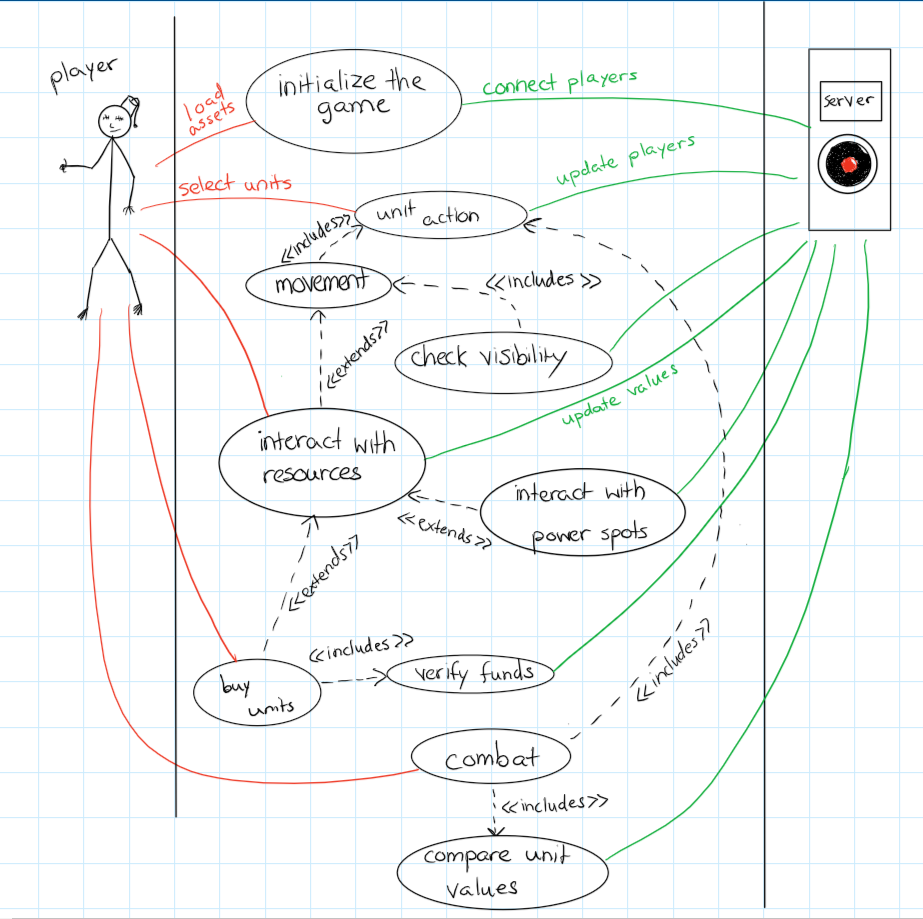 player
initialize the
game
load
assets
connect players
server
select units
update players
unit action
<<includes>>
movement
<<includes>>
<<extends>>
check visibility
update values
interact with
resources
interact with
power spots
<<extends>>
<<extends>>
<<includes>>
<<includes>>
verify funds
buy
units
combat
<<includes>>
compare unit
values